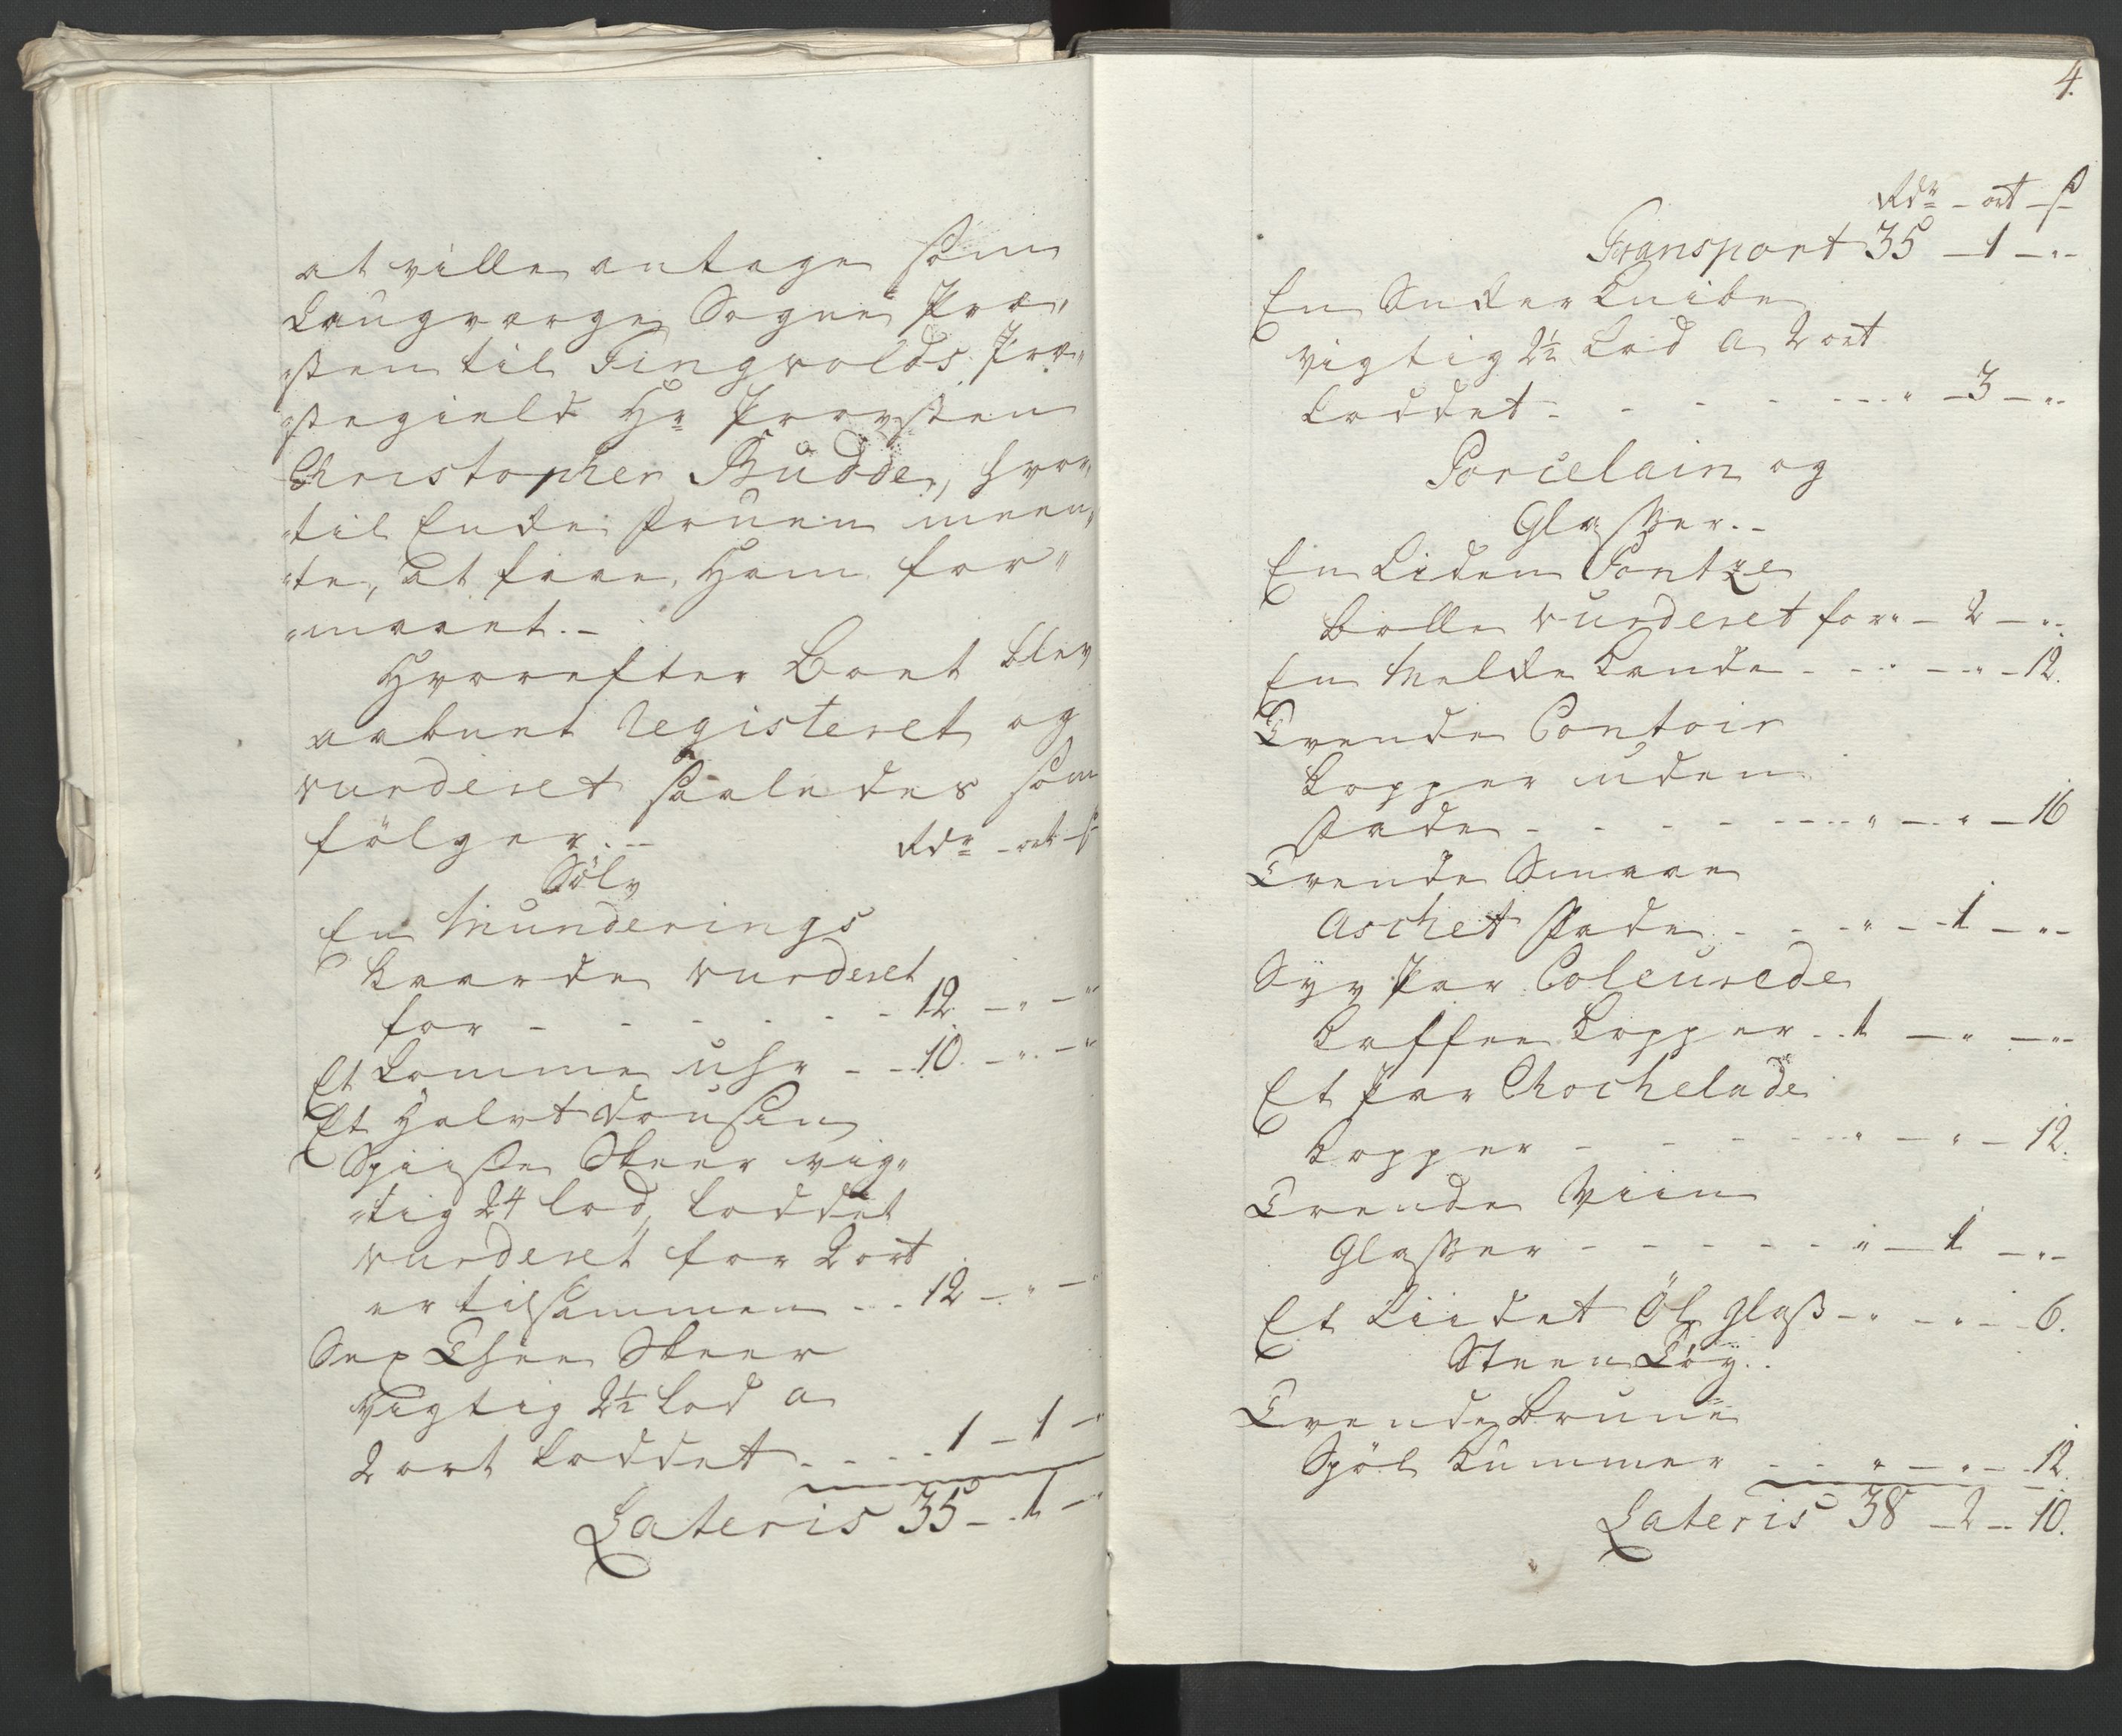 at ville antage som
Laugværge Sogne Præ„
„sten til Tingvolds Præ„
„stegield Hr Provsten
Christopher Budde, hvor„
„til Enke Fruen meen„
„te, at faae, Ham for„
„maaet.-
Hvorefter Boet blev
aabnet Registeret og
vurderet saaledes som
fölger.-
Rdr - ort - s
Sölv
En Munderings
Kaarde vurderet
for - - - - - - 12 - " - "
Et Lomme uhr - - 10. - " - "
Et Halvt dousin
Spiise Skeer vig„
„tig 24 Lod, Loddet
vurderet for 2 ort
er tilsammen - - - 12 - " - "
Sex Thee Skeer
vigtig 2½ Lod a
2 ort Loddet - - - - 1 - 1 - "
Lateris 35 - 1 - "
4.
Rdr - ort - s
Transport 35 - 1 - "
En Sukker Knibe
vigtig 2½ Lod a 2 ort
Loddet - - - - - - " - 3 - "
Porcelain og
Glasser.-
En Liden Pontze
Bolle vurderet for " - 2 - "
En Melke Kande - - - - " - 12.
Tvende Contoir
Kopper uden
Fade - - - - - - " - " - 16
Tvende Smaae
Aschet Fade - - - " - 1 - "
Syv Par Coleurede
Caffee Kopper - - 1 - " - "
Et Par Chochelade
Kopper - - - - - " - " - 12.
Tvende Viin
Glasser - - - - - - " - 1 - "
Et Liidet Öl Glas - " - " - 6.
Steen Töy.
Tvende Brune
Spöl Kummer - - " - " - 12.
Lateris 38 - 2 - 10.